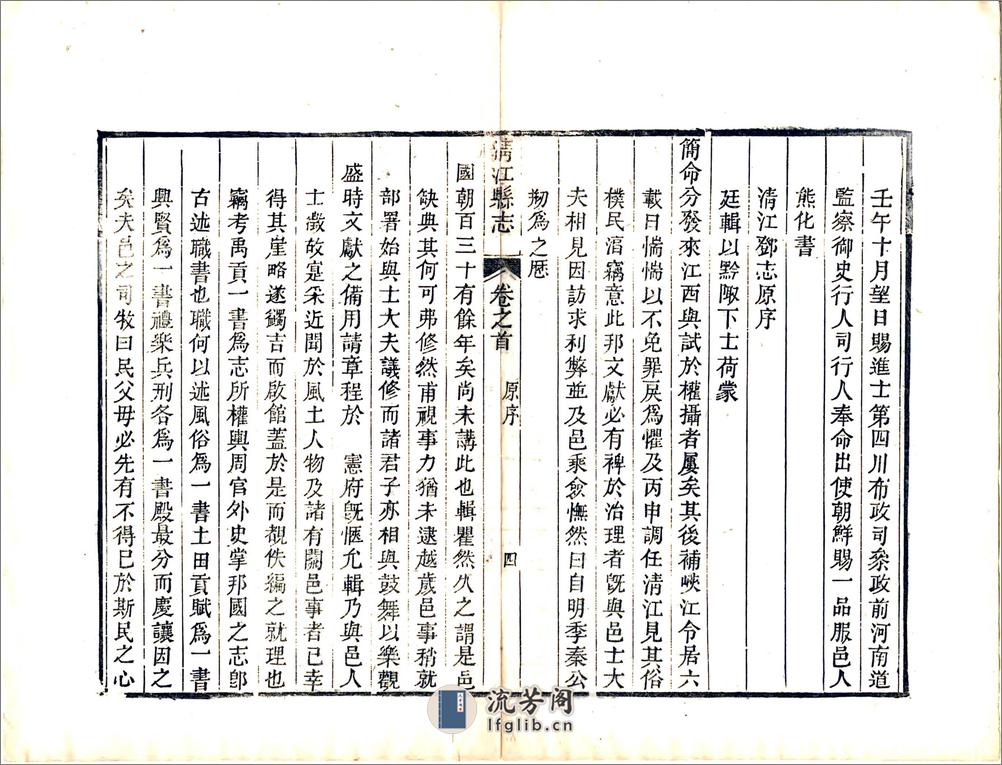 壬午十月望日賜進士第四川布政司叅政前河南道
監察御史行人司行人奉命出使朝鮮賜一品服邑人
熊化書
清江鄧志原序
廷輯以黔陬下士荷蒙
簡命分發來江西與試於權攝者屢矣其後補峽江令居六
載日惴惴以不免罪戾為懼及丙申調任清江見其俗
樸民湻竊意此邦文獻必有裨於治理者旣與邑士大
夫相見因訪求利弊並及邑乘僉憮然曰自明季秦公
刱為之厯
清江縣志
卷之首
原序
四
國朝百三十有餘年矣尚未講此也輯瞿然久之謂是邑
缺典其何可弗修然甫視事力猶未逮越歲邑事稍就
部署始與士大夫議修而諸君子亦相與鼓舞以樂觀
盛時文獻之備用請章程於 憲府旣愜允輯乃與邑人
士徵故寔采近聞於風土人物及諸有關邑事者已幸
得其崖略遂蠲吉而啟館蓋於是而覩佚編之就理也
竊考禹貢一書為志所權輿周官外史掌邦國之志卽
古述職書也職何以述風俗為一書土田貢賦為一書
興賢為一書禮樂兵刑各為一書殿最分而慶讓因之
矣夫邑之司牧曰民父母必先有不得已於斯民之心
流芳阁
lfglib.cn